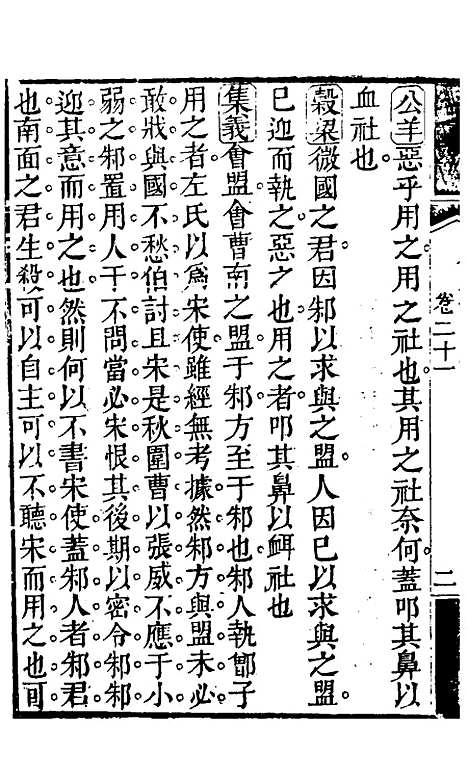 卷二十一
二
公羊惡乎用之用之社也其用之社奈何蓋叩其鼻以
血社也
穀梁微國之君因邾以求與之盟。人因已以求與之盟。
已迎而執之惡之也用之者叩其鼻以衈社也
集義會盟會曹南之盟于邾方至于邾也邾人執鄫子
用之者左氏以爲宋使雖經無考據然邾方與盟未必
敢戕與國不愁伯討且宋是秋圍曹以張威不應于小
弱之邾置用人于不問當必宋恨其後期以密令邾邾
迎其意而用之也然則何以不書宋使蓋邾人者邾君
也南面之君生殺可以自主可以不聽宋而用之也可